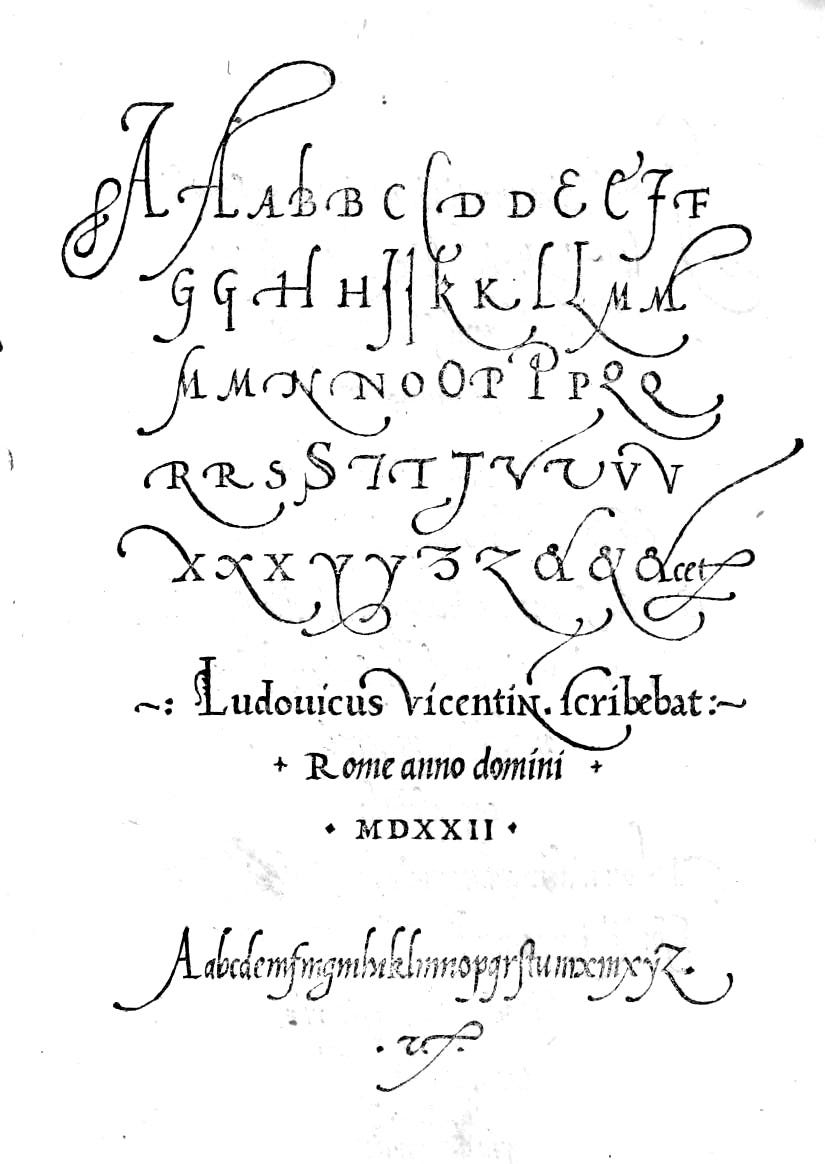 A A A B B B C D D D E E F F
G G H H J J K K L L M M
M M N N O O P P P Q Q
R R S S T T T V V V V
X X X Y Y Z Z & & &cet
~: Ludouicus Vicentin. scribebat :~
+ Rome anno domini +
• MDXXII •